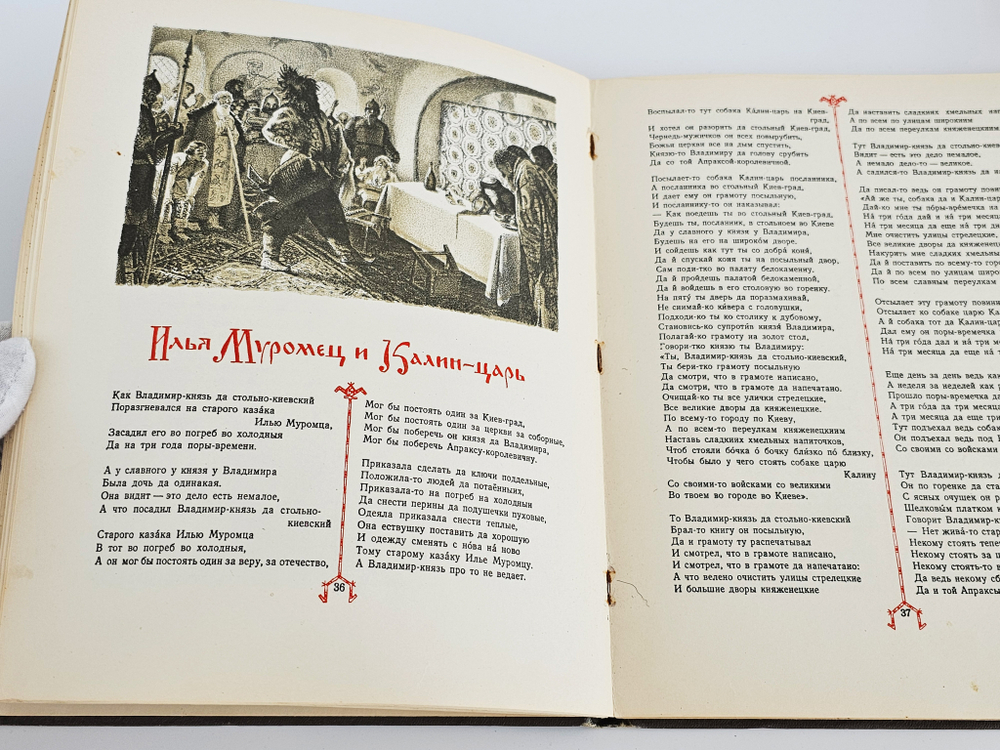 Илья Муромец и Калин-царь
Как Владимир-князь да стольно-киевский
Поразгневался на старого каза́ка
Илью Муромца,
Засадил его во погреб во холодныя
Да на три года поры-времени.
А у славного у князя у Владимира
Была дочь да одинакая.
Она видит — это дело есть немалое,
А что посадил Владимир-князь да стольно-
киевский
Старого каза́ка Илью Муромца
В тот во погреб во холодныя,
А он мог бы постоять один за веру, за отечество,
Мог бы постоять один за Киев-град,
Мог бы постоять один за церкви за соборные,
Мог бы поберечь он князя да Владимира,
Мог бы поберечь Апраксу-королевичну.
Приказала сделать да ключи поддельные,
Положила-то людей да потаённыих,
Приказала-то на погреб на холодныя
Да снести перины да подушечки пуховые,
Одеяла приказала снести теплые,
Она ествушку поставить да хорошую
И одежду сменять с но́ва на́ ново
Тому старому каза́ку Илье Муромцу.
А Владимир-князь про то не ведает.
36
Воспылал-то тут собака Ка́лин-царь на Киев-
град,
И хотел он разорить да стольный Киев-град,
Чернедь-мужичков он всех повырубить,
Божьи церкви все на дым спустить,
Князю-то Владимиру да голову срубить
Да со той Апраксой-королевичной.
Посылает-то собака Ка́лин-царь посланника,
А посланника во стольный Киев-град,
И дает ему он грамоту посыльную,
И посланнику-то он наказывал:
— Как поедешь ты во стольный Киев-град,
Будешь ты, посланник, в стольноем во Киеве
Да у славного у князя у Владимира,
Будешь на его на широко́м дворе.
И сойдешь как тут ты со добра́ коня́,
Да й спускай коня ты на посыльный двор,
Сам поди-тко во палату белокаменну,
Да й пройдешь палатой белокаменной,
Да й войдешь в его столовую во горенку.
На пяту́ ты дверь да поразмахивай,
Не снимай-ко ки́вера с головушки,
Подходи-ко ты ко столику к дубовому,
Становись-ко супроти́в князя́ Владимира,
Полагай-ко грамоту на золот стол,
Говори-тко князю ты Владимиру:
«Ты, Владимир-князь да стольно-киевский,
Ты бери-тко грамоту посыльную
Да смотри, что в грамоте написано,
Да смотри, что в грамоте да напечатано.
Очищай-ко ты все улички стрелецкие,
Все великие дворы да княженецкие.
По всему-то городу по Киеву,
А по всем-то переулкам княженецкиим
Наставь сладкиих хмельных напиточков,
Чтоб стояли бо́чка о́ бочку бли́зко по́ близку,
Чтобы было у чего стоять собаке царю
Калину
Со своими-то войсками со великими
Во твоем во городе во Киеве».
То Владимир-князь да стольно-киевский
Брал-то книгу он посыльную,
Да и грамоту ту распечатывал
И смотрел, что в грамоте написано,
И смотрел, что в грамоте да напечатано:
А что велено очистить улицы стрелецкие
И большие дворы княженецкие
Да наставить сладкиих хмельных
А по всем по улицам широкиим
Да по всем переулкам княженецкиим
Тут Владимир-князь да стольно-
Видит — есть это дело немалое,
А немало дело-то — великое.
А садился-то Владимир-князь да
Да писал-то ведь он грамоту
«Ай же ты, собака да и Калин-царь
Дай-ко мне ты по́ры-вре́мечка на
На́ три го́да дай и на́ три
На́ три месяца да еще на́ три
Мне очистить улицы стрелецкие,
Все великие дворы да
Накурить мне сладкиих
Да й поставить по всему-то
Да й по всем по улицам
По всем славным переулкам
Отсылает эту грамоту
Отсылает ко собаке царю
А й собака тот да
Дал ему он поры-времечка
На́ три го́да дал и на́ три
На́ три месяца да еще на́
Еще день за день ведь как
А неделя за неделей как
Прошло поры-времечка да
А три го́да да три
А три месяца да еще три
Тут подъехал ведь
Он подъехал ведь под
Со своими со войсками
Тут Владимир-князь
Он по горенке да
С ясных очушек он
Шелковы́м платком
Говорит Владимир-
— Нет жива́-то
Некому стоять
Некому стоять за
Некому стоять-то
Да ведь некому
Да и той Апраксы
37